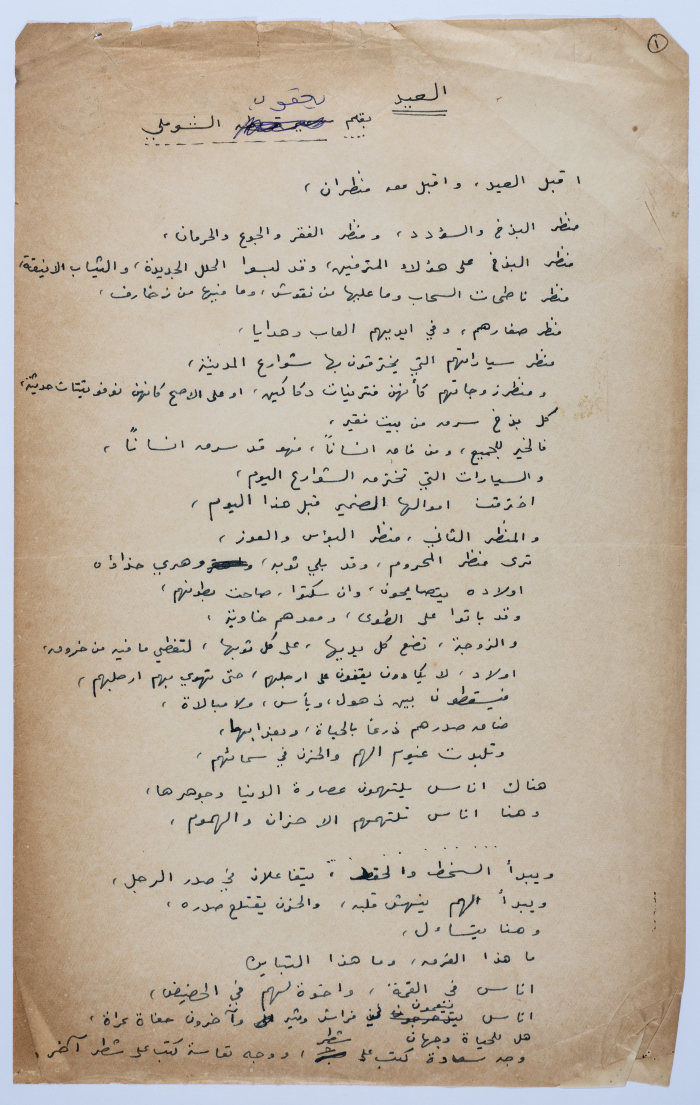 ١
العيد
يعقوب
بقلم الشوملي
اقبل العيد، واقبل معه منظران،
منظر البذخ والسؤدد، ومنظر الفقر والجوع والحرمان،
منظر البذخ على هؤلاء المترفين، وقد لبسوا الحلل الجديدة، والثياب الانيقة،
منظر ناطحات السحاب وما عليها من نقوش، وما فيها من زخارف،
منظر صغارهم، وفي ايديهم العاب وهدايا،
منظر سياراتهم التي يخترقون بها شوارع المدينة،
ومنظر زوجاتهم كأنهن فترينات دكاكين، او على الاصح كانهن نوفوتيتات حديثة،
كل بذخ سرق من بيت فقير،
فالخير للجميع، ومن فاق انساناً، فهو قد سرق انساناً،
والسيارات التي تخترق الشوارع اليوم،
اخترقت اموالها الضمير قبل هذا اليوم،
والمنظر الثاني، منظر البؤس والعوز،
ترى منظر المحروم، وقد بلي ثوبه، وهري حذاؤه
اولاده يتصايحون، وان سكتوا، صاحت بطونهم،
وقد باتوا على الطوى، ومعدهم خاوية،
والزوجة، تضع كل يديها، على كل ثوبها، لتغطي ما فيه من خروق،
اولاد، لا يكادون يقفون على ارجلهم، حتى تهوي بهم ارجلهم،
فيسقطون بين ذهول، ويأس، ولا مبالاة،
ضاق صدرهم ذرعا بالحياة، وبعذابها،
وتلبدت غيوم الهم والحزن في سمائهم،
هناك اناس يلتهمون عصارة الدنيا وجوهرها،
وهنا اناس تلتهمهم الاحزان والهموم،
ويبدأ السخط والحقد، يتفاعلان في صدر الرجل،
ويبدأ الهم ينهش قلبه، والحزن يقتلع صدره،
وهنا يتساءل،
ما هذا الفرق، وما هذا التباين
اناس في القمة، واخوة لهم في الحضيض،
اناس يتنعمون في فراش وثير وآخرون حفاة عراة،
هل للحياة وجهان
وجه سعادة كتب على شطر، ووجه تعاسة كتب على شطر آخر،